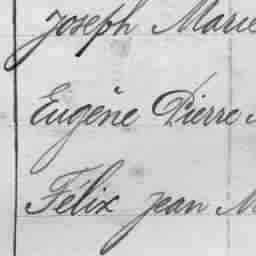 Joseph Marie
Eugène Pierre
Félix Jean